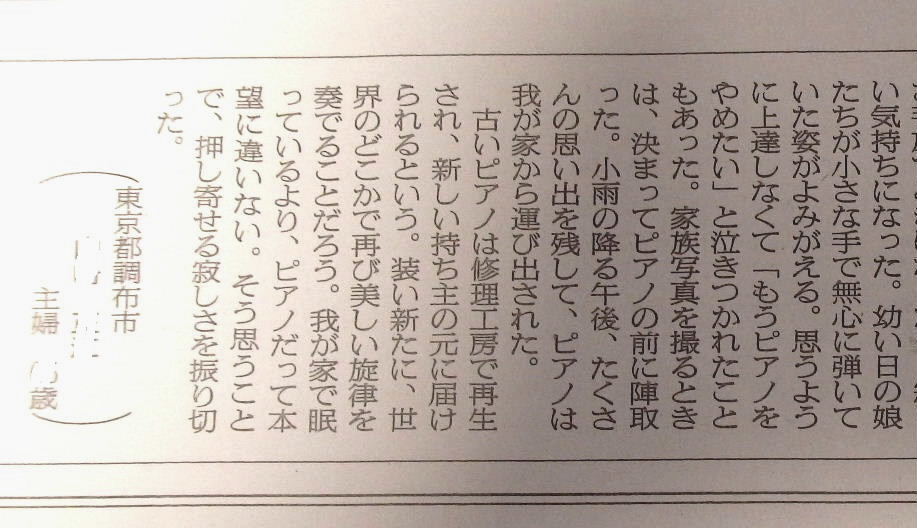 い気持ちになった。幼い日の娘
たちが小さな手で無心に弾いて
いた姿がよみがえる。思うよう
に上達しなくて「もうピアノを
やめたい」と泣きつかれたこと
もあった。家族写真を撮るとき
は、決まってピアノの前に陣取
った。小雨の降る午後、たくさ
んの思い出を残して、ピアノは
我が家から運び出された。
古いピアノは修理工房で再生
され、新しい持ち主の元に届け
られるという。装い新たに、世
界のどこかで再び美しい旋律を
奏でることだろう。我が家で眠
っているより、ピアノだって本
望に違いない。そう思うこと
で、押し寄せる寂しさを振り切
った。
東京都調布市
主婦 歳